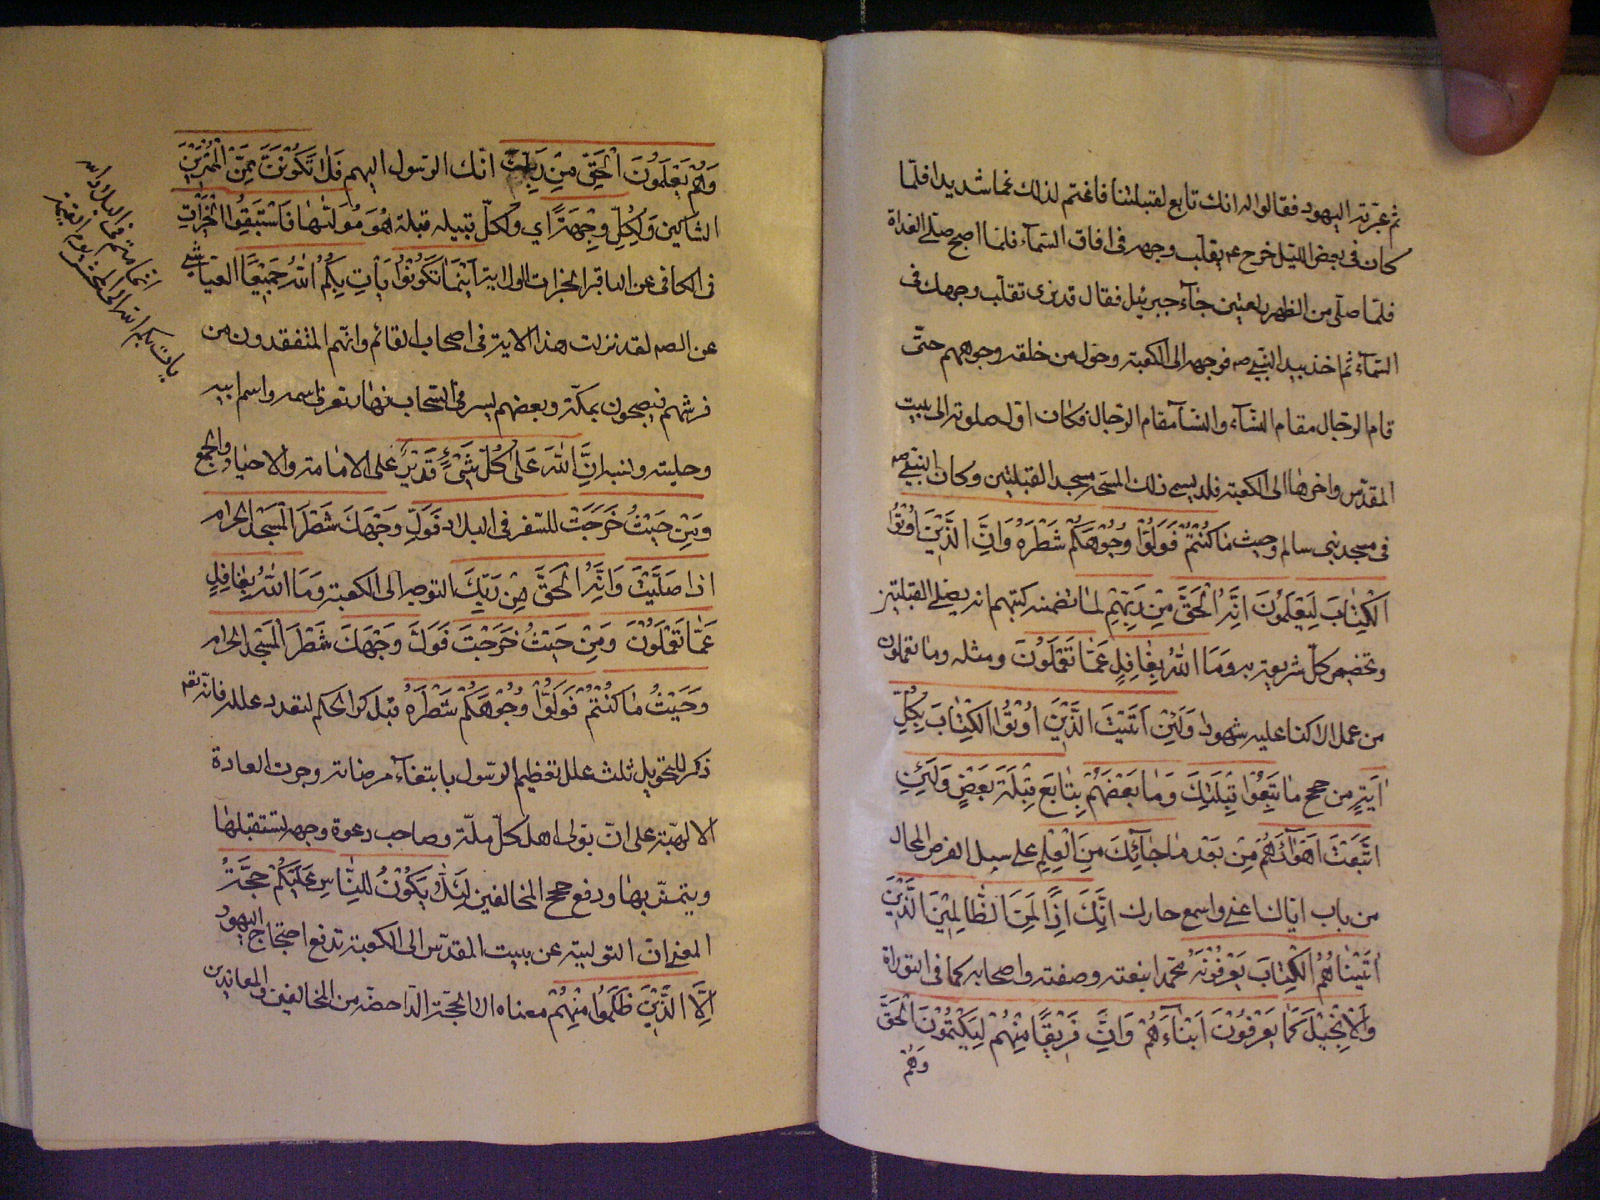 ثم عيرته اليهود فقالوا له انك تابع لقبلتنا فاغتم لذلك غما شديدا فلما
كان في بعض الليل خرج ص يقلب وجهه في افاق السماء فلما اصبح صلى الغداة
فلما صلى من الظهر ركعتين جاء جبرئيل فقال قد نرى تقلب وجهك في
السماء ثم اخذ بيد النبي ص فوجهه الى الكعبة وحول من خلفه وجوههم حتى
قام الرجال مقام النساء والنساء مقام الرجال فكان اول صلوته الى بيت
المقدس واخرها الى الكعبة فلذا يسمى ذلك المسجد مسجد القبلتين وكان النبي ص
في مسجد بني سالم وَحيث مَا كُنْتُمْ فَوَلُّوْا وُجُوْهَكُمْ شَطْرَهُ وَاِنَّ الَّذِيْنَ اُوْتُوا
الْكِتٰابَ لَيَعْلَمُوْنَ اَنَّهُ الْحَقَّ مِنْ رَبِّهِمْ لما تضمنه كتبهم انه يصلي القبلتين
وتخصيص كل شريعة به وَمَا اللّٰهُ بِغٰافِلٍ عَمّٰا تَعْمَلُوْنَ ومثله وما تعملون
من عمل الا كنا عليه شهودا وَلَئِنْ اَتَيْتَ الَّذِيْنَ اُوْتُوا الْكِتٰابَ بِكُلِّ
اٰيَةٍ من حجج مٰا تَبِعُوْا قِبْلَتَكَ وَمٰا بَعْضُهُمْ بِتٰابِعٍ قِبْلَةَ بَعْضٍ وَلَئِنِ
اتَّبَعْتَ اَهْوٰآءَهُمْ مِنْ بَعْدِ مٰا جٰائَكَ مِنَ الْعِلْمِ على سبيل الفرض المحال
من باب اياك اعني واسمعي يا جاره اِنَّكَ اِذًا لَمِنَ الظّٰالِمِيْنَ الَّذِيْنَ
اٰتَيْنٰاهُمُ الْكِتٰابَ يَعْرِفُوْنَهُ محمدا بنعته وصفته واصحابه كما في التوراة
والانجيل كَمٰا يَعْرِفُوْنَ اَبْنٰاءَهُمْ وَاِنَّ فَرِيْقًا مِنْهُمْ لَيَكْتُمُوْنَ الْحَقَّ
وَهُمْ
وَهُمْ يَعْلَمُوْنَ اَلْحَقُّ مِنْ رَبِّكَ انك الرسول اليهم فَلٰا تَكُوْنَنَّ مِنَ الْمُمْتَرِيْنَ
الشاكين وَلِكُلٍّ وِجْهَةٌ اي ولكل قبيلة قبلة هُوَ مُوَلّٰيهٰا فَاسْتَبِقُوا الْخَيْرٰاتِ
في الكافي عن الباقر الخيرات الولاية اَيْنَمٰا تَكُوْنُوْا يَأْتِ بِكُمُ اللّٰهُ جَمِيْعًا العياشي
عن الصـ لقد نزلت هذه الاية في اصحاب القائم وانهم المفتقدون من
فرشهم فيصبحون بمكة وبعضهم يسير في السحاب نهارا نعرف اسمه واسم ابيه
وحليته ونسبه اِنَّ اللّٰهَ عَلىٰ كُلِّ شَيْءٍ قَدِيْرٌ على الاماتة والاحياء والجمع
وَمِنْ حَيْثُ خَرَجْتَ للسفر في البلاد فَوَلِّ وَجْهَكَ شَطْرَ الْمَسْجِدِ الْحَرام
اذا صَلَّيْتَ وَاِنَّهُ الْحَقُّ مِنْ رَبِّكَ التوجه الى الكعبة وَمَا اللّٰهُ بِغٰافِلٍ
عَمّٰا تَعْمَلُوْنَ وَمِنْ حَيْثُ خَرَجْتَ فَوَلِّ وَجْهَكَ شَطْرَ الْمَسْجِدِ الحرام
وَحَيْثُ مٰا كُنْتُمْ فَوَلُّوْا وُجُوْهَكُمْ شَطْرَهُ قيل كرر الحكم لتعدد علله فانه تعـ
ذكر للتحويل ثلث علل تعظيم الرسول بابتغاء مرضاته وجري العادة
الالهية على ان يولى اهل كل ملة وصاحب دعوة وجهة يستقبلها
ويتميز بها ودفع حجج المخالفين لِئَلّٰا يَكُوْنَ لِلنّٰاسِ عَلَيْكُمْ حُجَّةٌ
المعنى ان التولية عن بيت المقدس الى الكعبة تدفع احتجاج اليهود
اِلَّا الَّذِيْنَ ظَلَمُوْا مِنْهُمْ معناه الا الحجة الداحضة من المخالفين والمعاندين
اينما متم في البلاد
يات بكم الله الى المحشر يوم القيمة